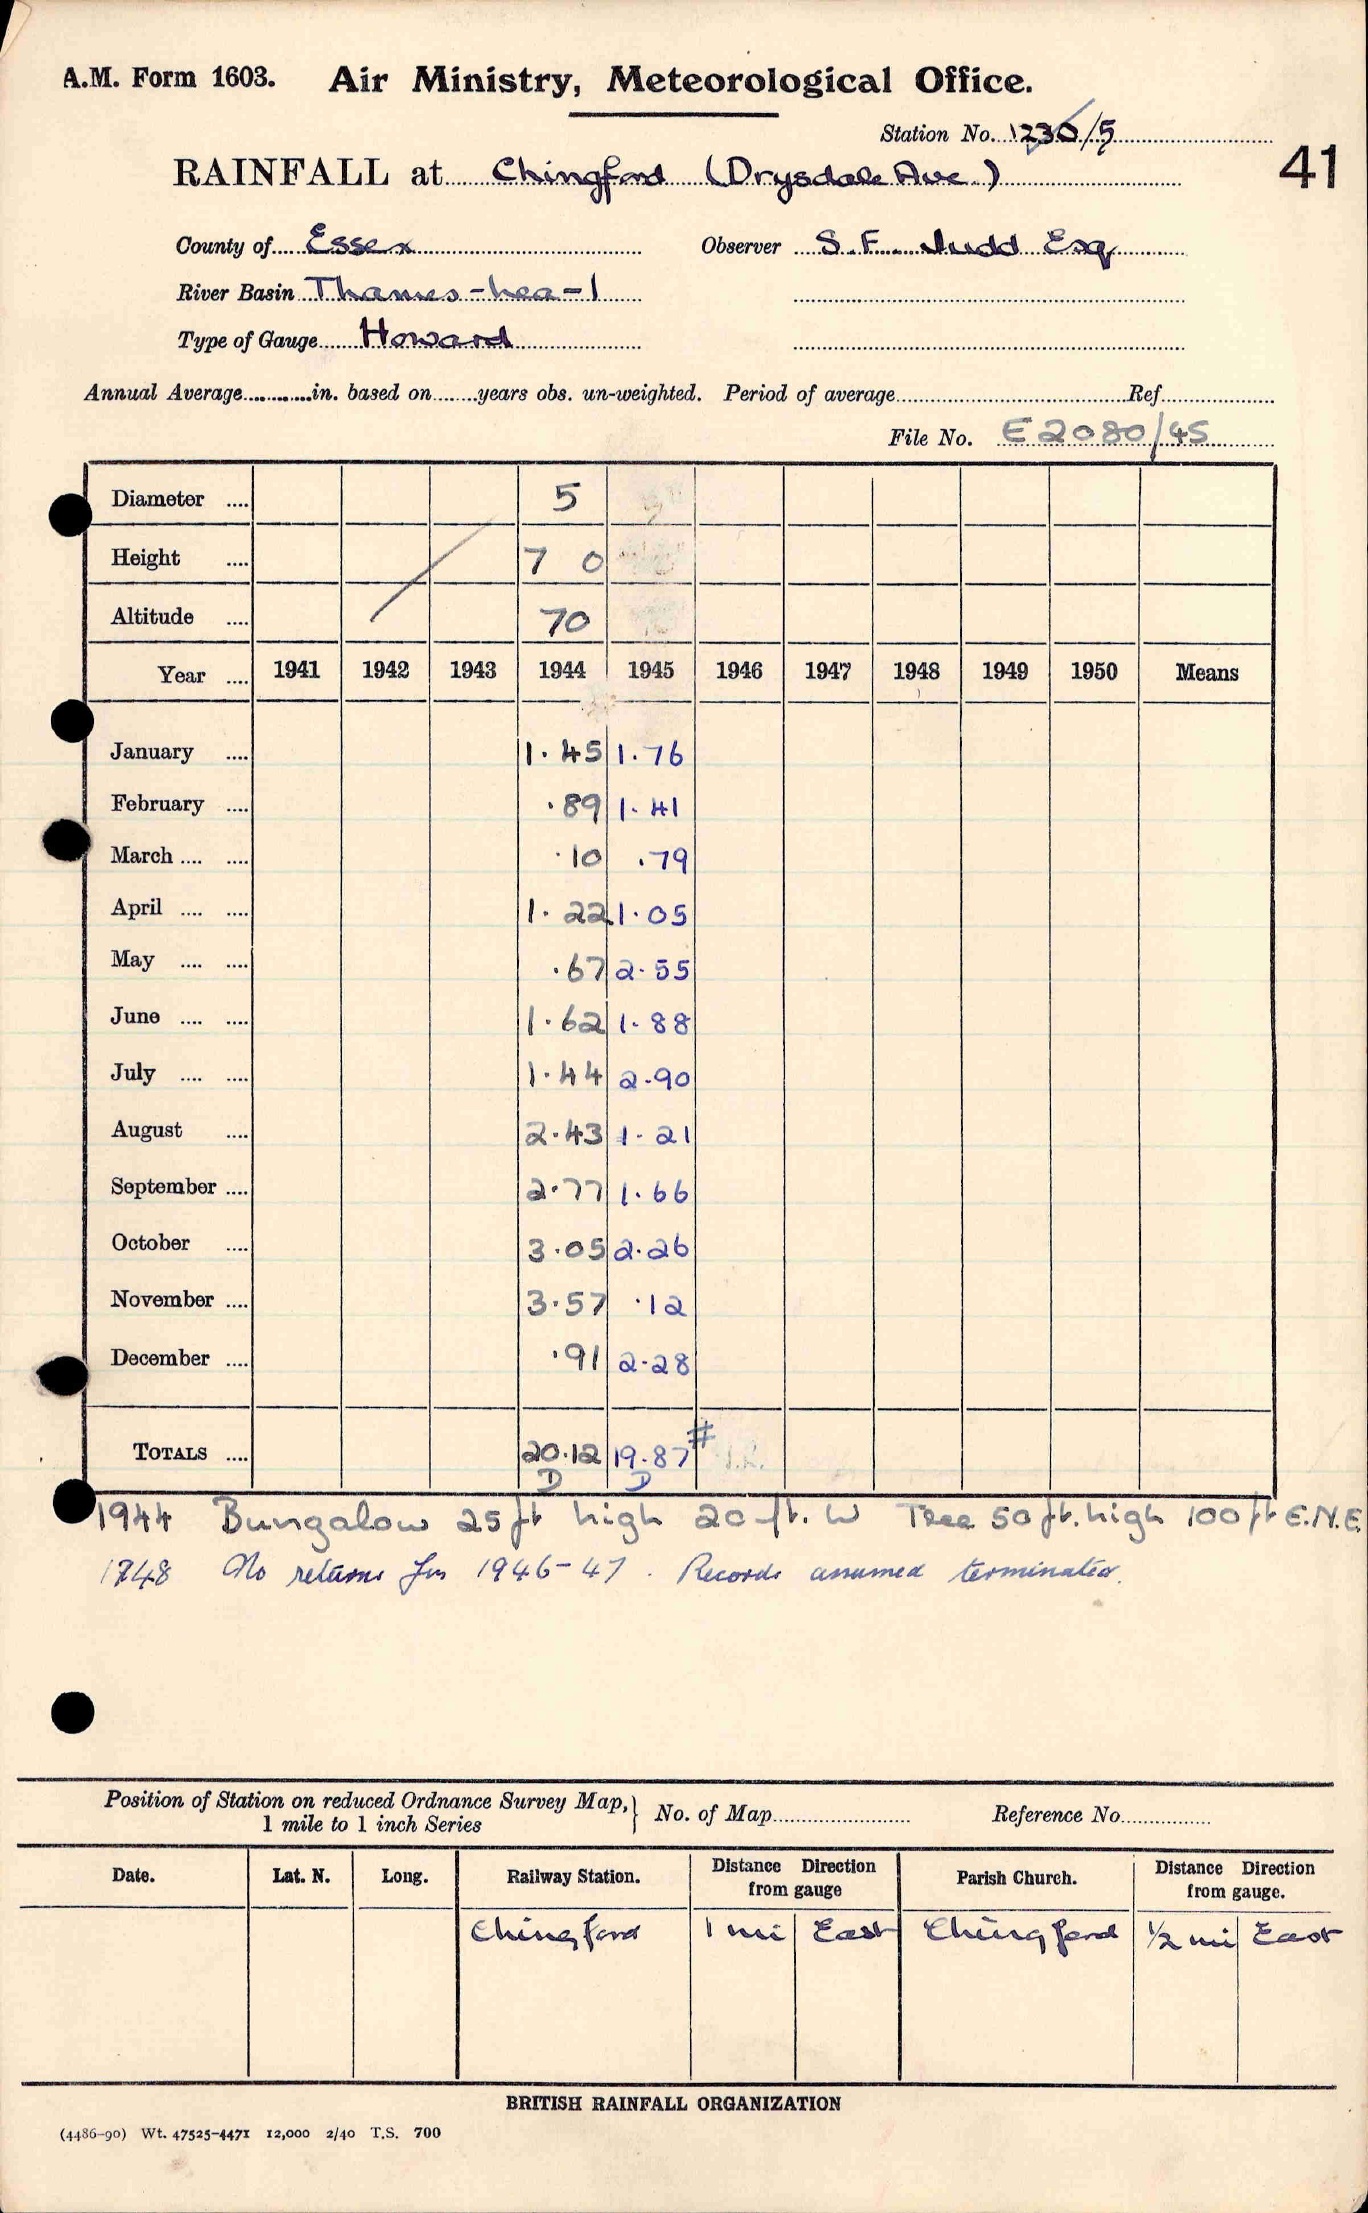 A.M. Form 1603. Air Ministry, Meteorological Office.
Station No. 1230/5
41
RAINFALL at Chingford (Drysdale Ave.)
County of Essex Observer S.F. Judd Esq
River Basin Thames-hea-1
Type of Gauge Howard
Annual Average............in. based on........years obs. un-weighted. Period of average Ref
File No. E2080/45
Diameter .... 5
Height .... 7 0
Altitude .... 70
Year .... 1941 1942 1943 1944 1945 1946 1947 1948 1949 1950 Means
January .... 1.45 1.76
February .... .89 1.41
March .... .... .10 .79
April .... .... 1.22 1.05
May .... .... .67 2.55
June .... .... 1.62 1.88
July .... .... 1.44 2.90
August .... 2.43 1.21
September .... 2.77 1.66
October .... 3.05 2.26
November .... 3.57 .12
December .... .91 2.28
TOTALS .... 20.12 19.87 #
D D
1944 Bungalow 25ft high 20 ft. W Tree 50ft. high 100ft E.N.E.
1948 No returns for 1946-47. Records assumed terminated.
Position of Station on reduced Ordnance Survey Map, } No. of Map Reference No.
1 mile to 1 inch Series
Date. Lat. N. Long. Railway Station. Distance Direction from gauge Parish Church. Distance Direction from gauge.
Chingford 1 mi East Chingford 1/2 mi East
BRITISH RAINFALL ORGANIZATION
(4486-90) Wt. 47525-4471 12,000 2/40 T.S. 700